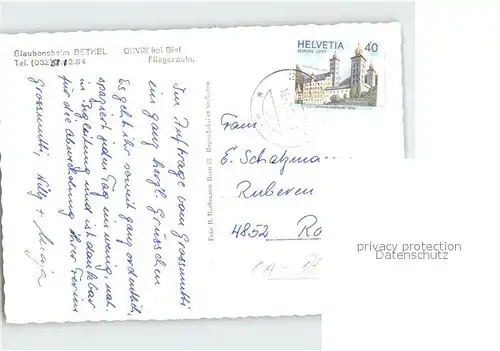 Glaubensheim BETHEL ORVIN bei Biel
Tel. (032) 58.12.84 Fliegeraufn.
HELVETIA 40
EUROPA CEPT
Im Auftrage vom Grossmutti
ein ganz herzl. Grüsschen
Es geht ihr soweit ganz ordentlich,
spaziert jeden Tag ein wenig, nat.
in Begleitung und ist dankbar
für die Abwechslung ihrer Ferien
Grossmutti, Willy + Maja
Foto H. Bachmann Bern 22 Reproduktion verboten
Fam.
E. Schatzma
4852 Ro
CH - BE
privacy protection
Datenschutz